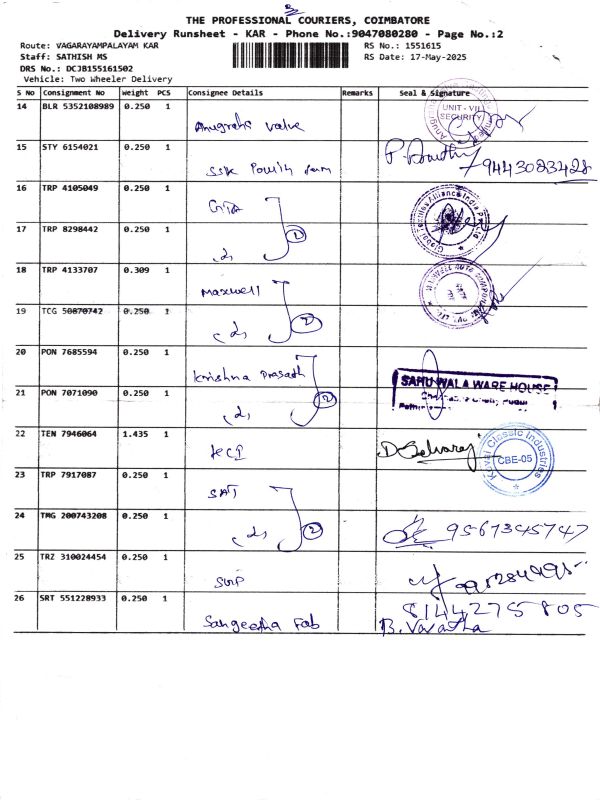 THE PROFESSIONAL COURIERS, COIMBATORE
Delivery Runsheet - KAR - Phone No.:9047080280 - Page No.:2
Route: VAGARAYAMPALAYAM KAR RS No.: 1551615
Staff: SATHISH MS RS Date: 17-May-2025
DRS No.: DCJB155161502
Vehicle: Two Wheeler Delivery
S No Consignment No Weight PCS Consignee Details Remarks Seal & Signature
14 BLR 5352108989 0.250 1 Anugraha Valve UNIT - VII SECURITY
15 STY 6154021 0.250 1 SSK Poultry farm 9443083428
16 TRP 4105049 0.250 1 GTA Global Textiles Alliance India
17 TRP 8298442 0.250 1 2
18 TRP 4133707 0.309 1 Maxwell
19 TCG 50870742 0.250 1 2
20 PON 7685594 0.250 1 Krishna Prasath SAHUWALA WARE HOUSE
21 PON 7071090 0.250 1 2
22 TEN 7946064 1.435 1 KCI D. Selvaraj Kovai Classic Industries CBE-05
23 TRP 7917087 0.250 1 SAT
24 TMG 200743208 0.250 1 2 9567345747
25 TRZ 310024454 0.250 1
26 SRT 551228933 0.250 1 Sangeetha Fab 8144275805